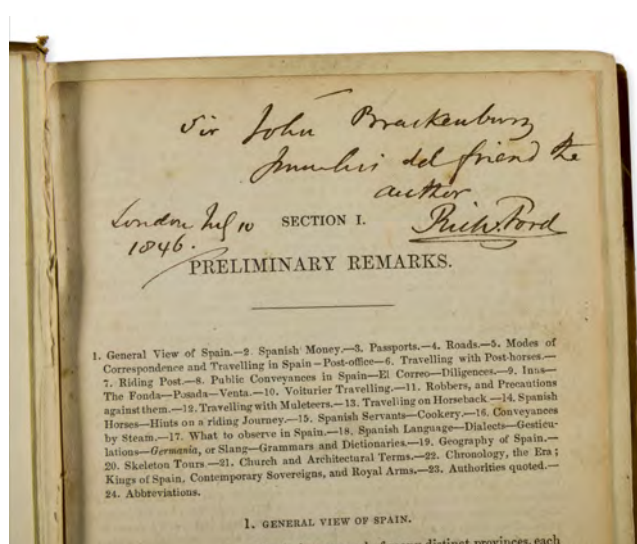 Sir John Brackenbury
from his old friend the
author
London July 10 SECTION I. Rich.d Ford
1846.
PRELIMINARY REMARKS.
1. General View of Spain.—2. Spanish Money.—3. Passports.—4. Roads.—5. Modes of
Correspondence and Travelling in Spain—Post-office—6. Travelling with Post-horses.—
7. Riding Post.—8. Public Conveyances in Spain—El Correo—Diligences.—9. Inns—
The Fonda—Posada—Venta.—10. Voiturier Travelling.—11. Robbers, and Precautions
against them.—12. Travelling with Muleteers.—13. Travelling on Horseback—14. Spanish
Horses—Hints on a riding Journey.—15. Spanish Servants—Cookery.—16. Conveyances
by Steam.—17. What to observe in Spain.—18. Spanish Language—Dialects—Gesticu-
lations—Germania, or Slang—Grammars and Dictionaries.—19. Geography of Spain.—
20. Skeleton Tours.—21. Church and Architectural Terms.—22. Chronology, the Era;
Kings of Spain, Contemporary Sovereigns, and Royal Arms.—23. Authorities quoted.—
24. Abbreviations.
1. GENERAL VIEW OF SPAIN.
distinct provinces, each